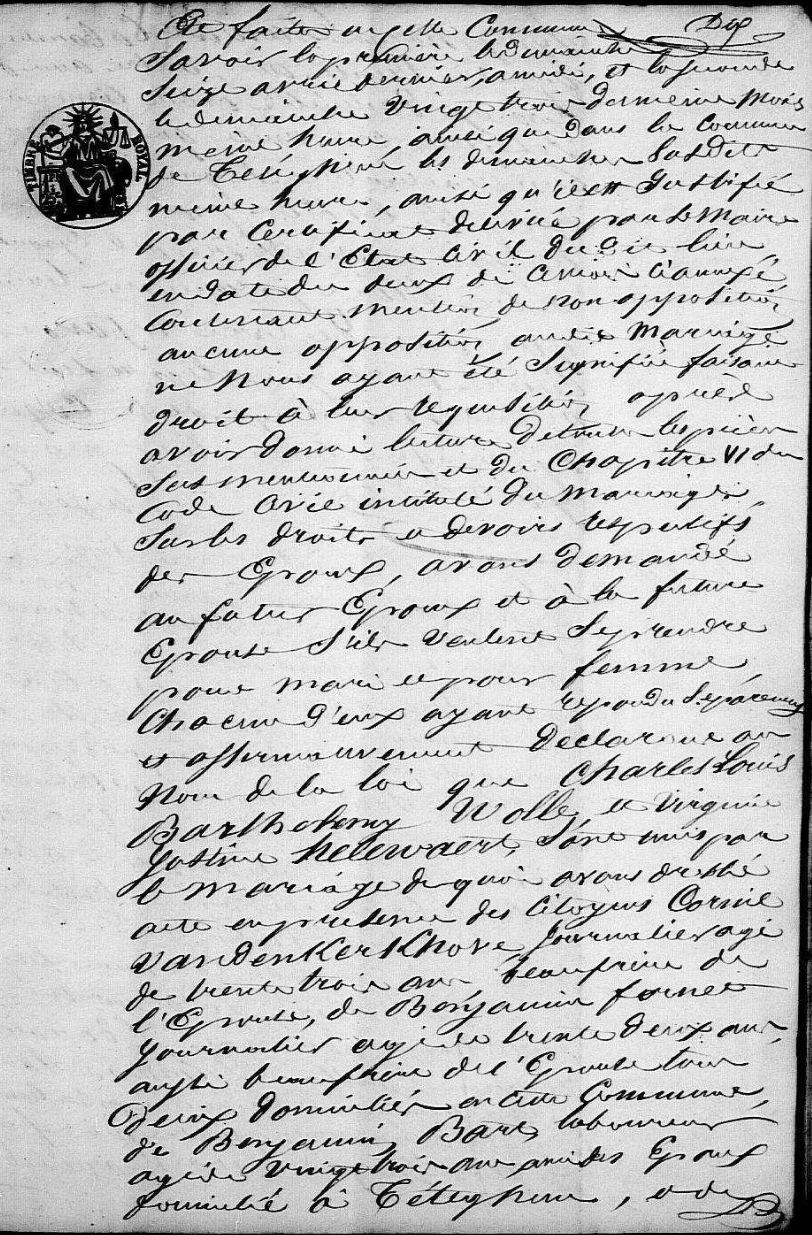 Dix
Eté faites en cette Commune
Savoir la première le dimanche
Seize avril dernier, a midi, et la seconde
le dimanche vingt trois du meme mois
meme heure, ainsi que dans la commune
de Téteghem les dimanches Susdits
meme heure, ainsi qu'il est Justifié
par certificat délivré par le Maire
officier de l'Etat Civil dudit lieu
en date du deux de ce mois ci annexé
Contenant mention de non opposition
aucune opposition audit Mariage
ne Nous ayant été Signifiée faisant
droit à leur requisition, après
avoir donné lecture de toutes les pièces
Sus mentionnées et du Chapitre VI du
Code Civil intitulé du Mariage,
Sur les droits et devoirs respectifs
des Epoux, avons demandé
au futur Epoux et à la future
Epouse S'ils veulent Se prendre
pour mari et pour femme,
Chacun d'eux ayant repondu Séparement
et affirmativement declarons au
Nom de la loi que Charles Louis
Barthelemy Wolle, et Virginie
Justine helewaert, Sont unis par
le mariage de quoi avons dressé
acte en présence des Citoyens Corneil
VandenKerKhove, Journalier agé
de trente trois ans, beaufrère de
l'Epouse, de Benjamin fornet
Journalier agé de trente deux ans,
aussi beaufrère de l'Epouse tous
deux domiciliés en cette Commune,
de Benjamin Bart, laboureur
agé de vingt trois ans ami des Epoux
domicilié à Téteghem, et de
TIMBRE ROYAL